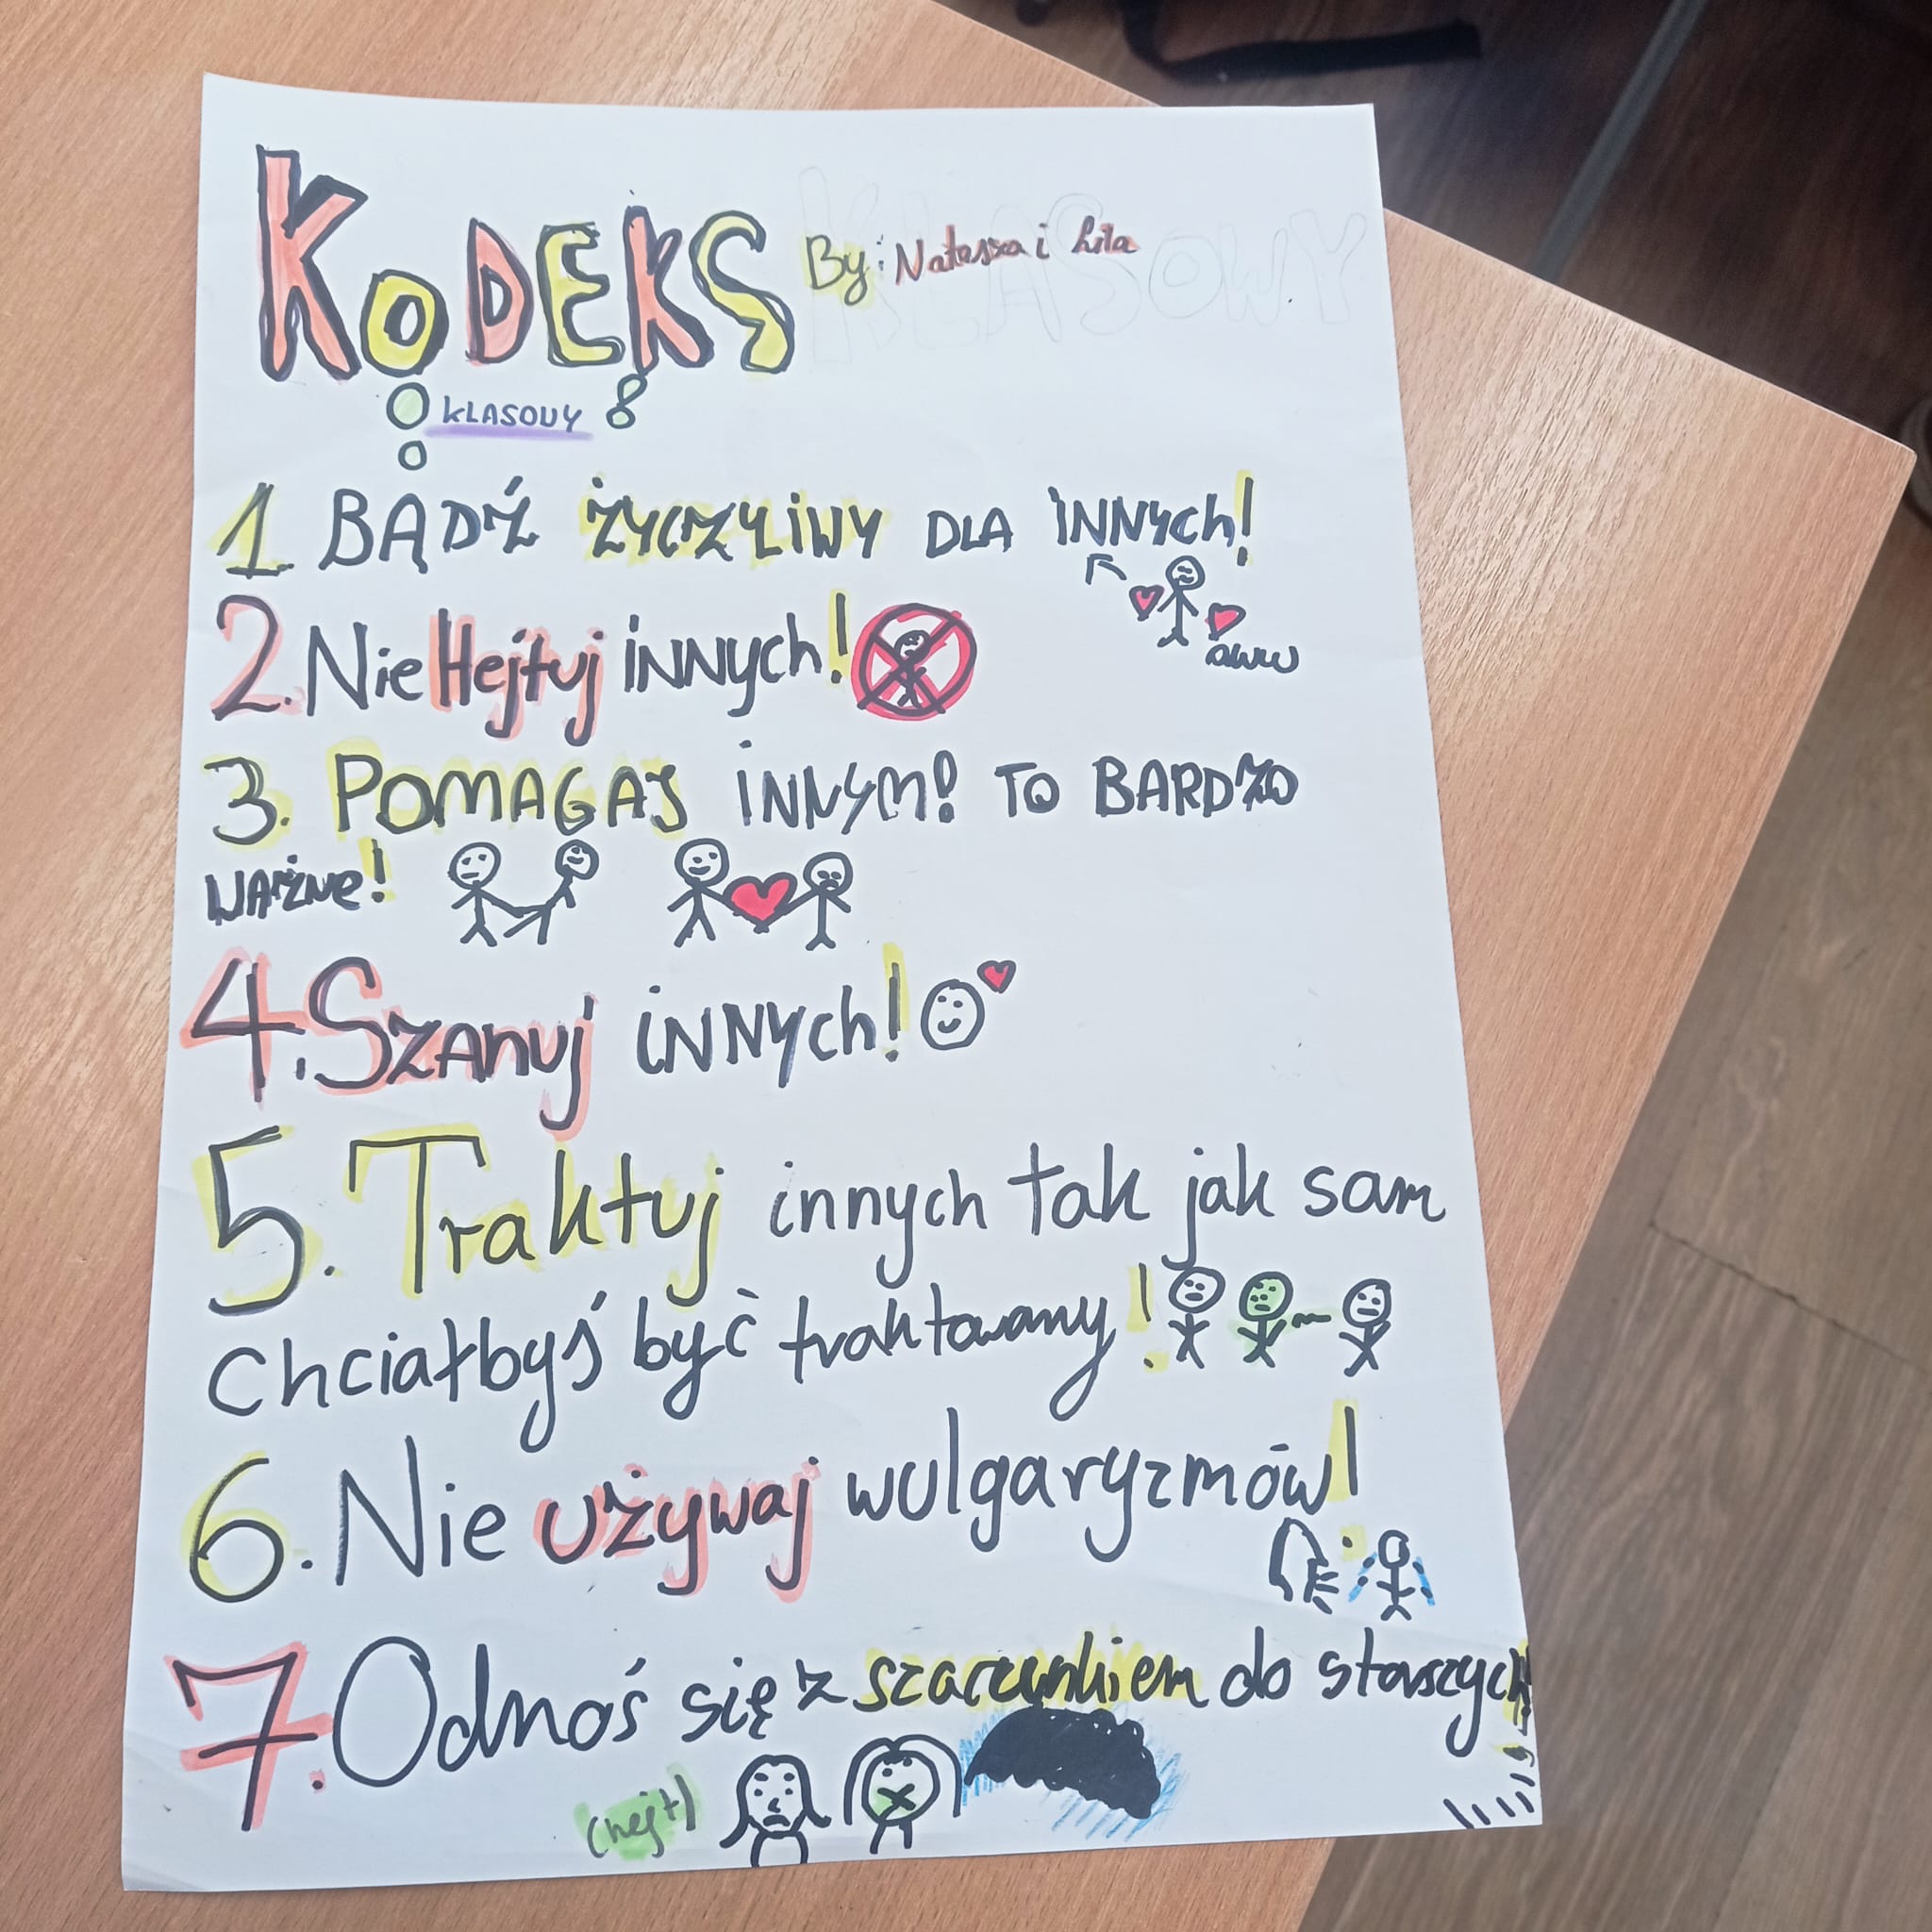 KODEKS
By: Natasza i Lila
KLASOWY
KLASOWY
1. BĄDŹ ŻYCZYLIWY DLA INNYCH!
aww
2. Nie Hejtuj innych!
3. POMAGAJ INNYM! TO BARDZO
WAŻNE!
4. Szanuj innych!
5. Traktuj innych tak jak sam
chciałbyś być traktowany!
6. Nie używaj wulgaryzmów!
7. Odnoś się z szacunkiem do starszych!
(hejt)